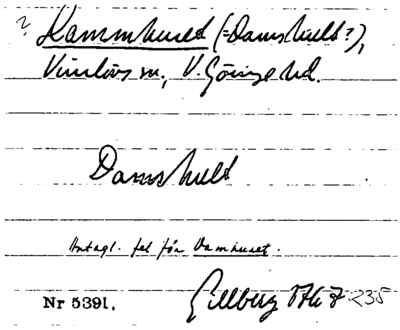 ? Kammhuset (=Damshult?),
Vinslövs sn., V. Göinge hd.
Damshult
Antagl. fel för Damhuset.
Nr 5391. Gillberg 235